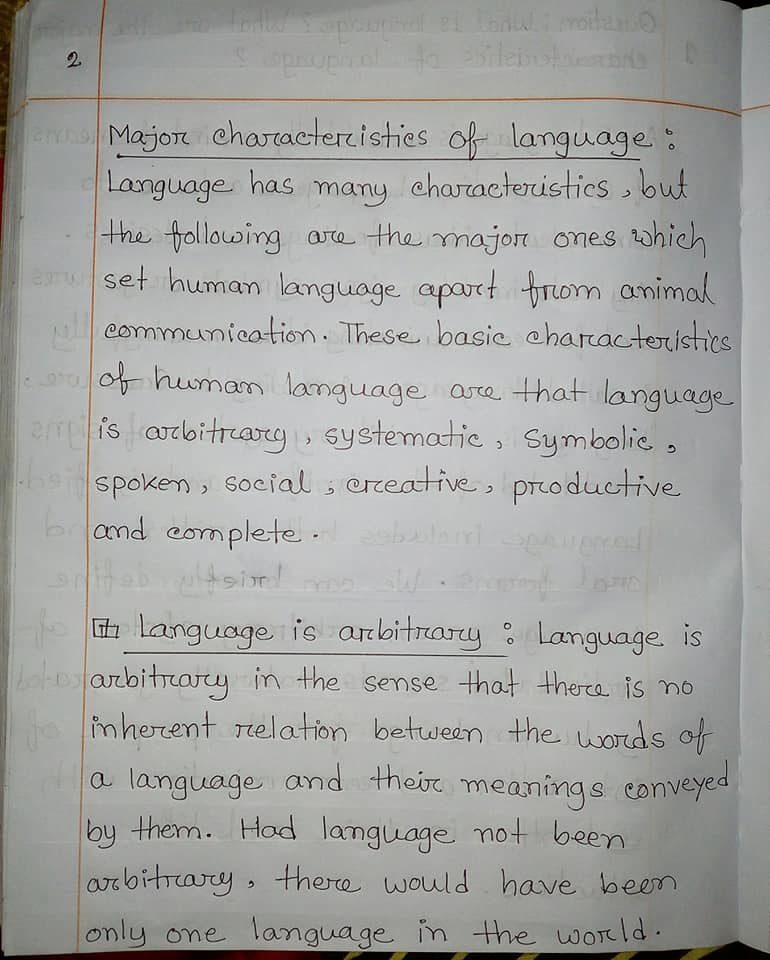 2
Major characteristics of language :
Language has many characteristics, but
the following are the major ones which
set human language apart from animal
communication. These basic characteristics
of human language are that language
is arbitrary, systematic, symbolic,
spoken, social, creative, productive
and complete.
Language is arbitrary : Language is
arbitrary in the sense that there is no
inherent relation between the words of
a language and their meanings conveyed
by them. Had language not been
arbitrary, there would have been
only one language in the world.